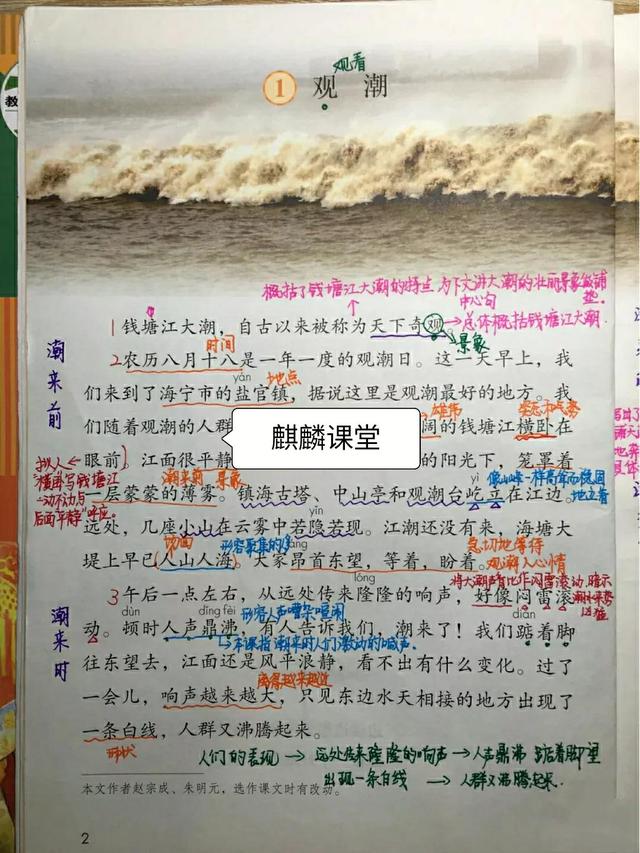 教
观看
1 观 潮
概括了钱塘江大潮的特点 为下文讲大潮的壮丽景象做铺垫。
中心句
1 钱塘江大潮，自古以来被称为天下奇观→总体概括钱塘江大潮
时间
景象
潮来前
2 农历八月十八是一年一度的观潮日。这一天早上，我
yán 地点
们来到了海宁市的盐官镇，据说这里是观潮最好的地方。我
雄伟
们随着观潮的人群
麒麟课堂
阔的钱塘江横卧在
拟人←眼前。江面很平静
的阳光下，笼罩着
"横卧"写钱塘江
一动不动与
后面"平静"呼应。
潮来前 景象
像山峰一样高耸而稳固地立着
yì
一层蒙蒙的薄雾。镇海古塔、中山亭和观潮台屹立在江边。
yǐn
远处，几座小山在云雾中若隐若现。江潮还没有来，海塘大
形容聚集的人多
áng
急切地等待
堤上早已人山人海。大家昂首东望，等着，盼着。观潮人心情
lóng
3 午后一点左右，从远处传来隆隆的响声，好像闷雷滚
潮来时
dùn
dǐng fèi
形容人声嘈杂喧闹
diǎn
动。顿时人声鼎沸，有人告诉我们，潮来了！我们踮着脚
本课指潮来时人们激动的喊声。
往东望去，江面还是风平浪静，看不出有什么变化。过了
离得越来越近
一会儿，响声越来越大，只见东边水天相接的地方出现了
一条白线，人群又沸腾起来。
形状
人们的表现→远处传来隆隆的响声→人声鼎沸 踮着脚望
出现一条白线→人群又沸腾起来.
本文作者赵宗成、朱明元，选作课文时有改动。
2